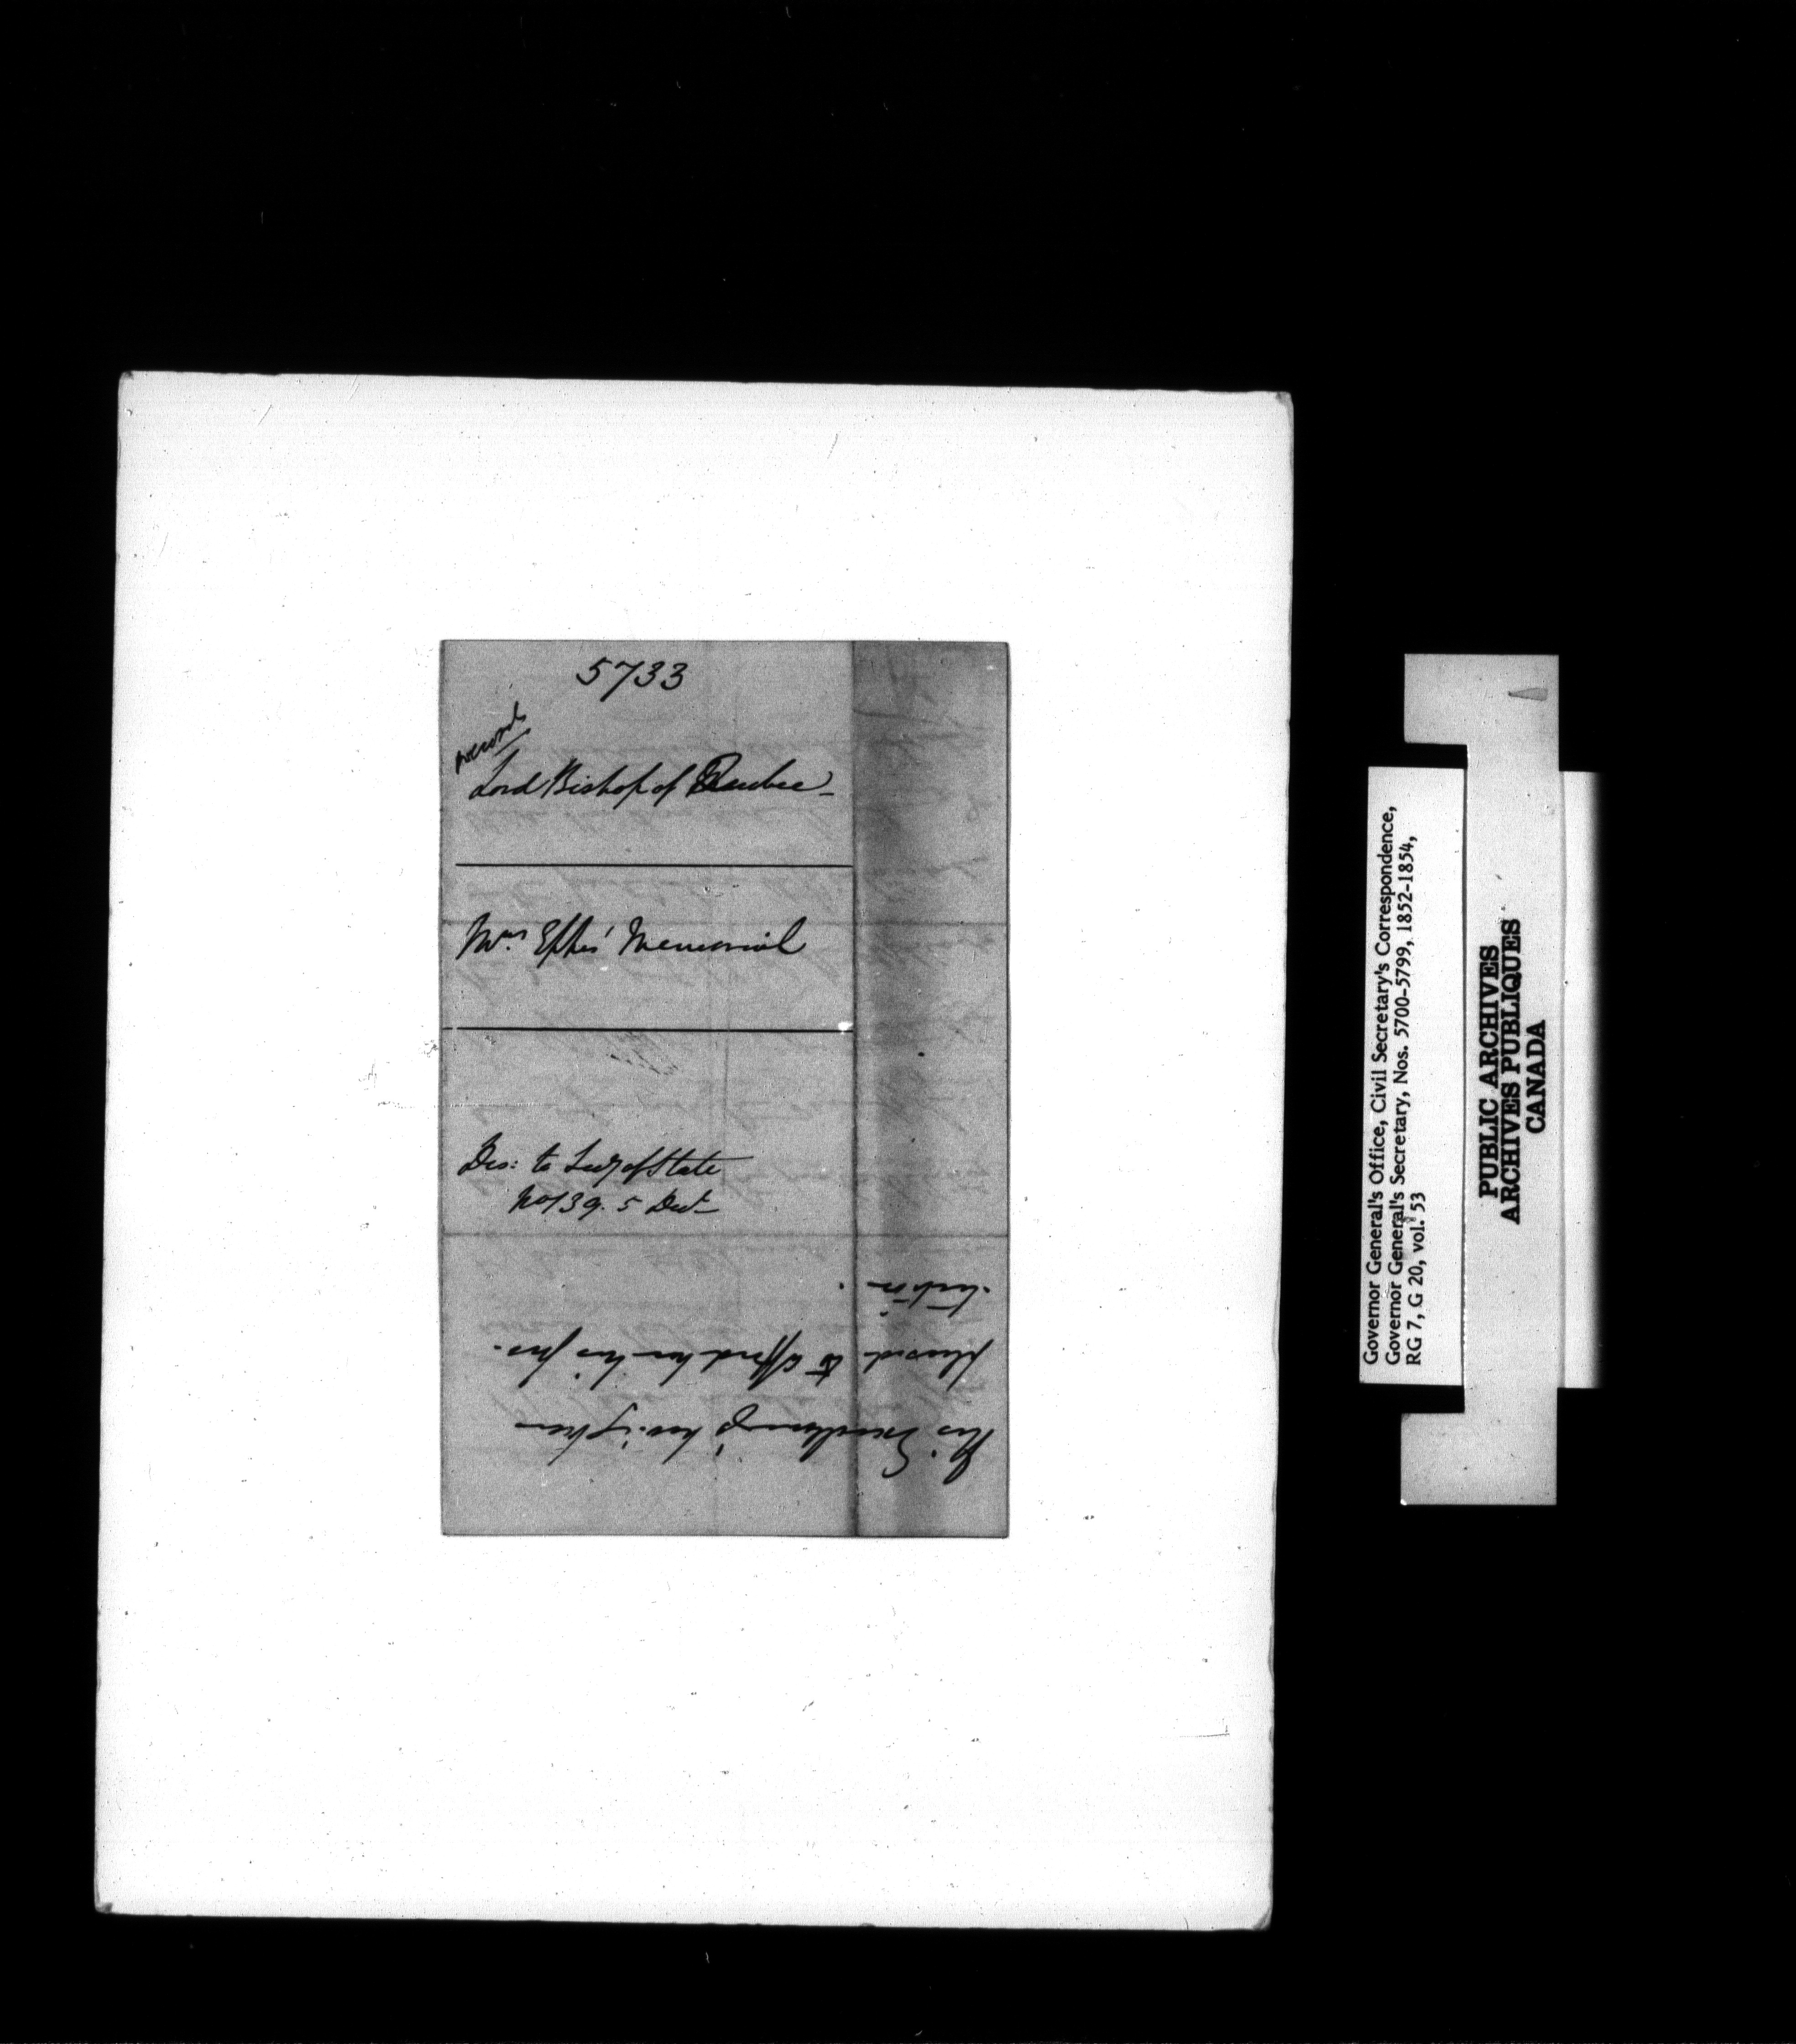 5733
Lord Bishop of Quebec -
Mrs. Eppes' Memorial
Des: to Secy of State
No 139. 5 Decr
His Excellency's having been
pleased to afford her his pro-
-tection.
Governor General's Office, Civil Secretary's Correspondence,
Governor General's Secretary, Nos. 5700-5799, 1852-1854,
RG 7, G 20, vol. 53
PUBLIC ARCHIVES
ARCHIVES PUBLIQUES
CANADA